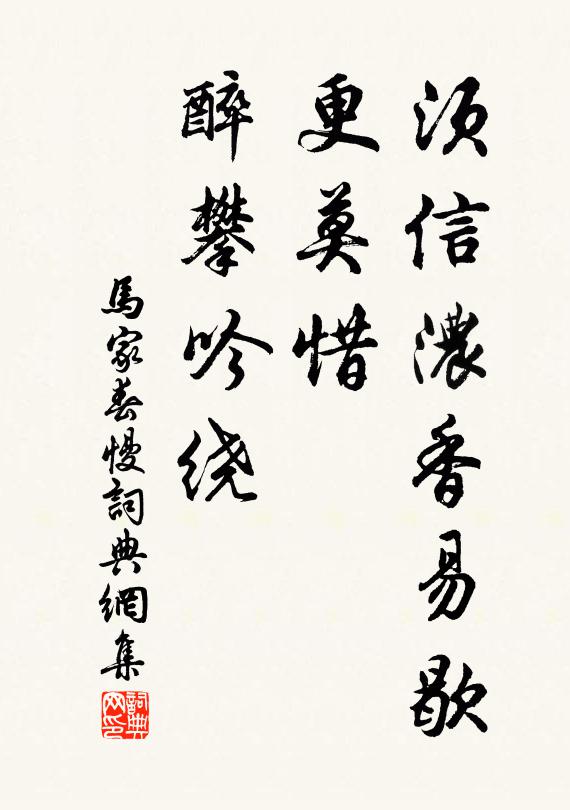 須信濃香易歇
更莫惜
醉攀吟绕
馬家春慢詞典網集
詞典网印